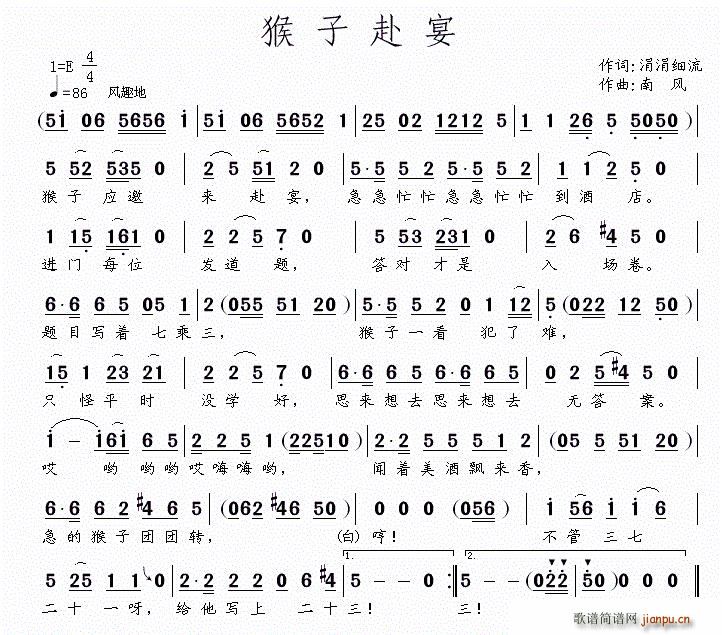 猴子赴宴
1=E 4/4
作词:涓涓细流
♩=86 风趣地
作曲:南 风
(5i 06 5656 i | 5i 06 5652 1 | 25 02 1212 5 | 1 1 26 5 5050 )
5 52 535 0 | 2 5 51 20 | 5·5 5 2 5·5 5 2 | 1 1 2 5 0
猴子 应邀 来 赴宴, 急急忙忙急急忙忙 到酒 店。
1 15 161 0 | 2 2 5 7 0 | 5 53 231 0 | 2 6 #4 5 0
进门 每位 发道 题, 答对 才是 入 场卷。
6·6 6 5 05 1 | 2 (055 51 20 ) | 5·5 5 2 0 1 12 | 5 (022 12 50 )
题目写着 七乘三, 猴子一看 犯了 难,
15 1 23 21 | 2 2 5 7 0 | 6·6 6 5 6·6 6 5 | 0 2 5#4 5 0
只 怪平时 没学 好, 思来想去思来想去 无答 案。
i – i6i 6 5 | 2 2 5 1 (22510 ) | 2·2 5 5 5 1 2 | (05 5 51 20 )
哎 哟 哟哟哎嗨嗨哟, 闻着美酒飘来香,
6·6 6 2 #4 6 5 | (062 #46 50 ) | 0 0 0 (056 ) | i 56 i i 6
急的猴子团团转, (白)哼! 不管 三七
1. 2.
5 25 1 1 0 | 2·2 2 2 0 6 #4 | 5 – 0 0 :| 5 – – (022 | 50 ) 0 0 0
二十 一呀, 给他写上 二十三! 三!
歌谱简谱网
jianpu.cn